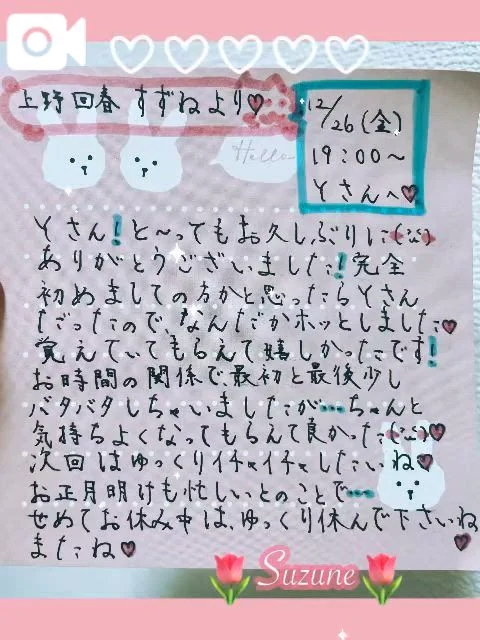 上野回春 すずねより♡
12/26(金)
19:00〜
Yさんへ♡
Hello
Yさん!と〜ってもお久しぶりに(¨̮)
ありがとうございました!完全
初めましての方かと思ったらYさん
だったので、なんだかホッとしました♡
覚えていてもらえて嬉しかったです!
お時間の関係で最初と最後少し
バタバタしちゃいましたが…ちゃんと
気持ちよくなってもらえて良かった(¨̮)♡
次回はゆっくりイチャイチャしたいね♡
お正月明けも忙しいとのことで…
せめてお休み中は、ゆっくり休んで下さいね♡
またね♡
Suzune